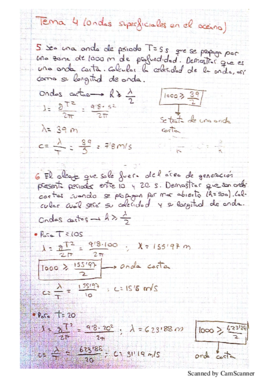 Tema 4 (Ondas superficiales en el océano)
5 Sea una onda de periodo T=5s que se propaga por
una zona de 1000 m de profundidad. Demostrar que es
una onda corta. Calcular la celeridad de la onda, así
como su longitud de onda.
Ondas cortas → h ≥ λ/2
λ = gT²/2π = 9'8·5²/2π
1000 ≥ 39/2
Se trata de una onda corta.
λ = 39 m
c = λ/T = 39/5 = 7'8 m/s
6 El oleaje que sale fuera del área de generación
presenta periodos entre 10 y 20 s. Demostrar que son ondas
cortas cuando se propagan por mar abierto
cular cual será su celeridad y su longitud de onda.
Ondas cortas → h ≥ λ/2
• Para T = 10s
λ = gT²/2π = 9'8·100/2π ; λ = 155'97 m
1000 ≥ 155'97/2 → onda corta
c = λ/T = 155'97/10 ; c = 15'6 m/s
• Para T = 20
λ = gT²/2π = 9'8·20²/2π ; λ = 623'88 m
1000 ≥ 623'88/2
onda corta
c = λ/T = 623'88/20 ; c = 31'19 m/s
Scanned by CamScanner